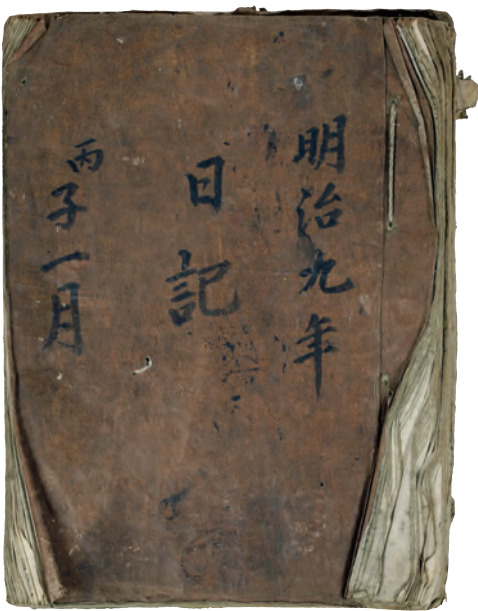 明治九年
日記
丙子一月